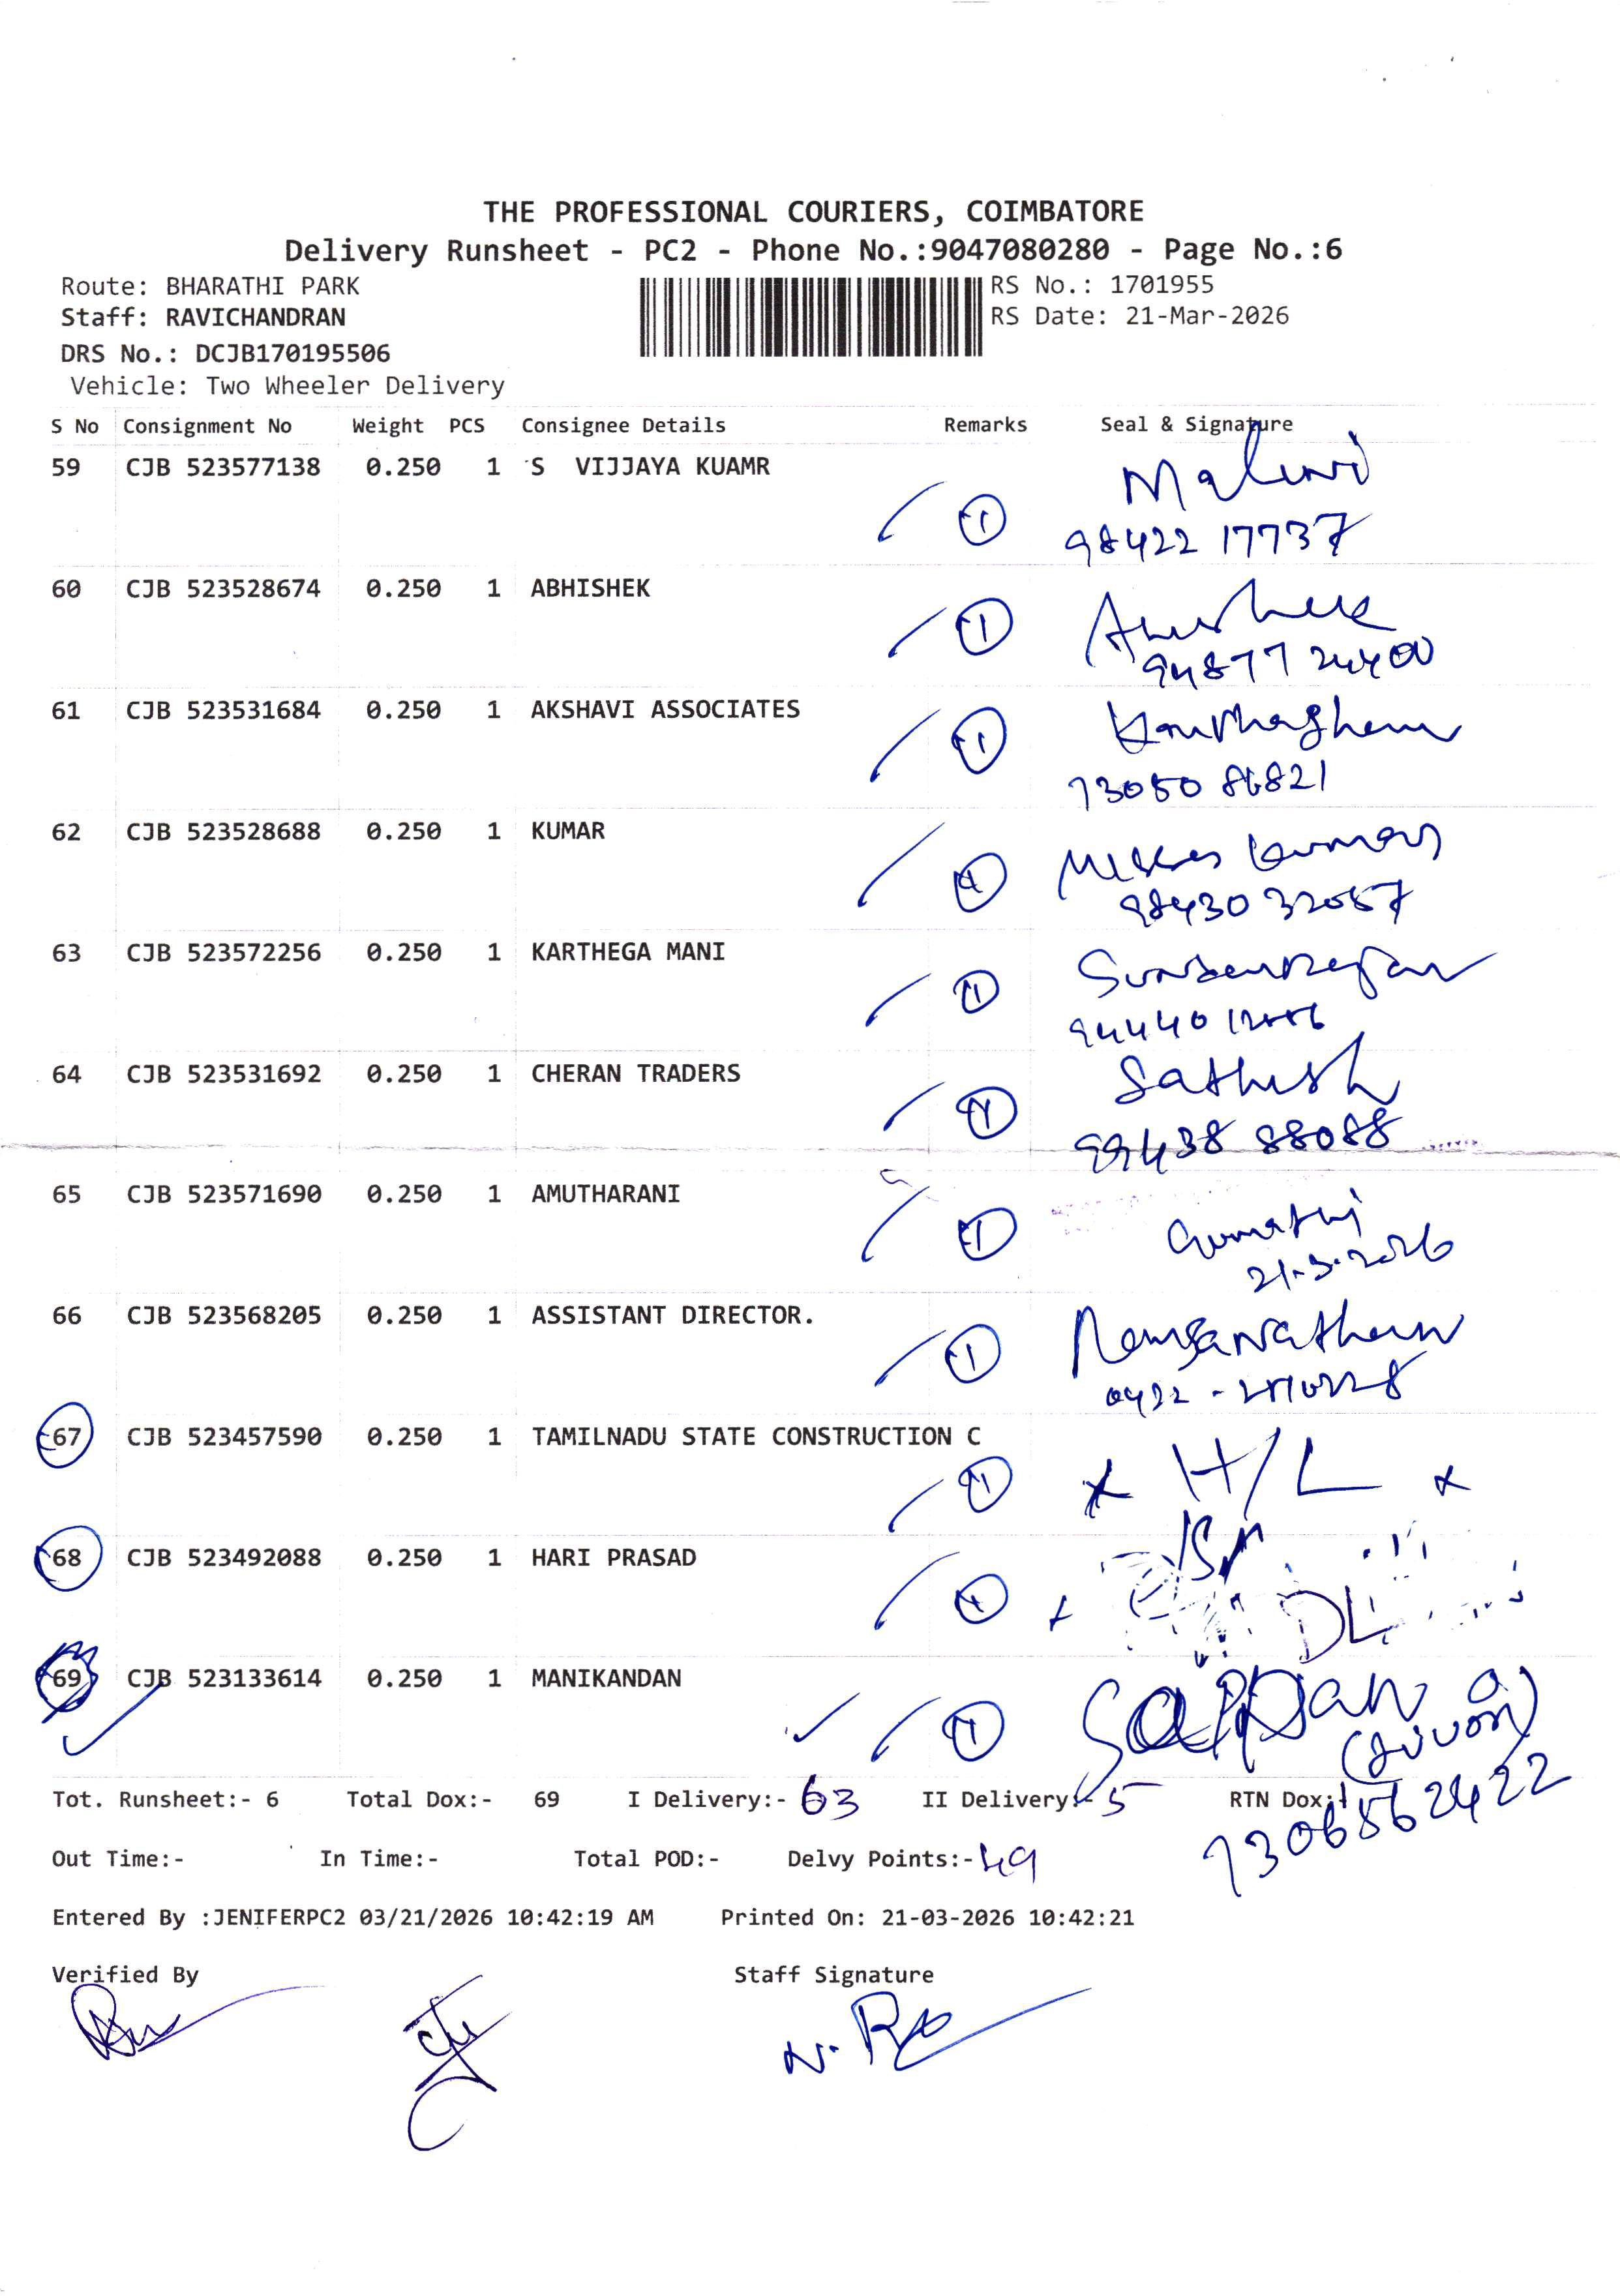 THE PROFESSIONAL COURIERS, COIMBATORE
Delivery Runsheet - PC2 - Phone No.:9047080280 - Page No.:6
Route: BHARATHI PARK
Staff: RAVICHANDRAN
DRS No.: DCJB170195506
Vehicle: Two Wheeler Delivery
RS No.: 1701955
RS Date: 21-Mar-2026
S No Consignment No Weight PCS Consignee Details Remarks Seal & Signature
59 CJB 523577138 0.250 1 S VIJJAYA KUAMR 1
98422 17737
60 CJB 523528674 0.250 1 ABHISHEK 1
94877 24400
61 CJB 523531684 0.250 1 AKSHAVI ASSOCIATES 1
73050 86821
62 CJB 523528688 0.250 1 KUMAR
Kumar
98430 32057
63 CJB 523572256 0.250 1 KARTHEGA MANI 1
64 CJB 523531692 0.250 1 CHERAN TRADERS 1
Sathish
99438 88088
65 CJB 523571690 0.250 1 AMUTHARANI 1
Gomathi
21.3.2026
66 CJB 523568205 0.250 1 ASSISTANT DIRECTOR. 1
Renganathan
0422 -
67 CJB 523457590 0.250 1 TAMILNADU STATE CONSTRUCTION C 1
x H/L x
68 CJB 523492088 0.250 1 HARI PRASAD
DL
69 CJB 523133614 0.250 1 MANIKANDAN 1
Tot. Runsheet:- 6 Total Dox:- 69 I Delivery:- 63 II Delivery:- 5 RTN Dox:- 1
7306562422
Out Time:- In Time:- Total POD:- Delvy Points:- 49
Entered By :JENIFERPC2 03/21/2026 10:42:19 AM Printed On: 21-03-2026 10:42:21
Verified By Staff Signature